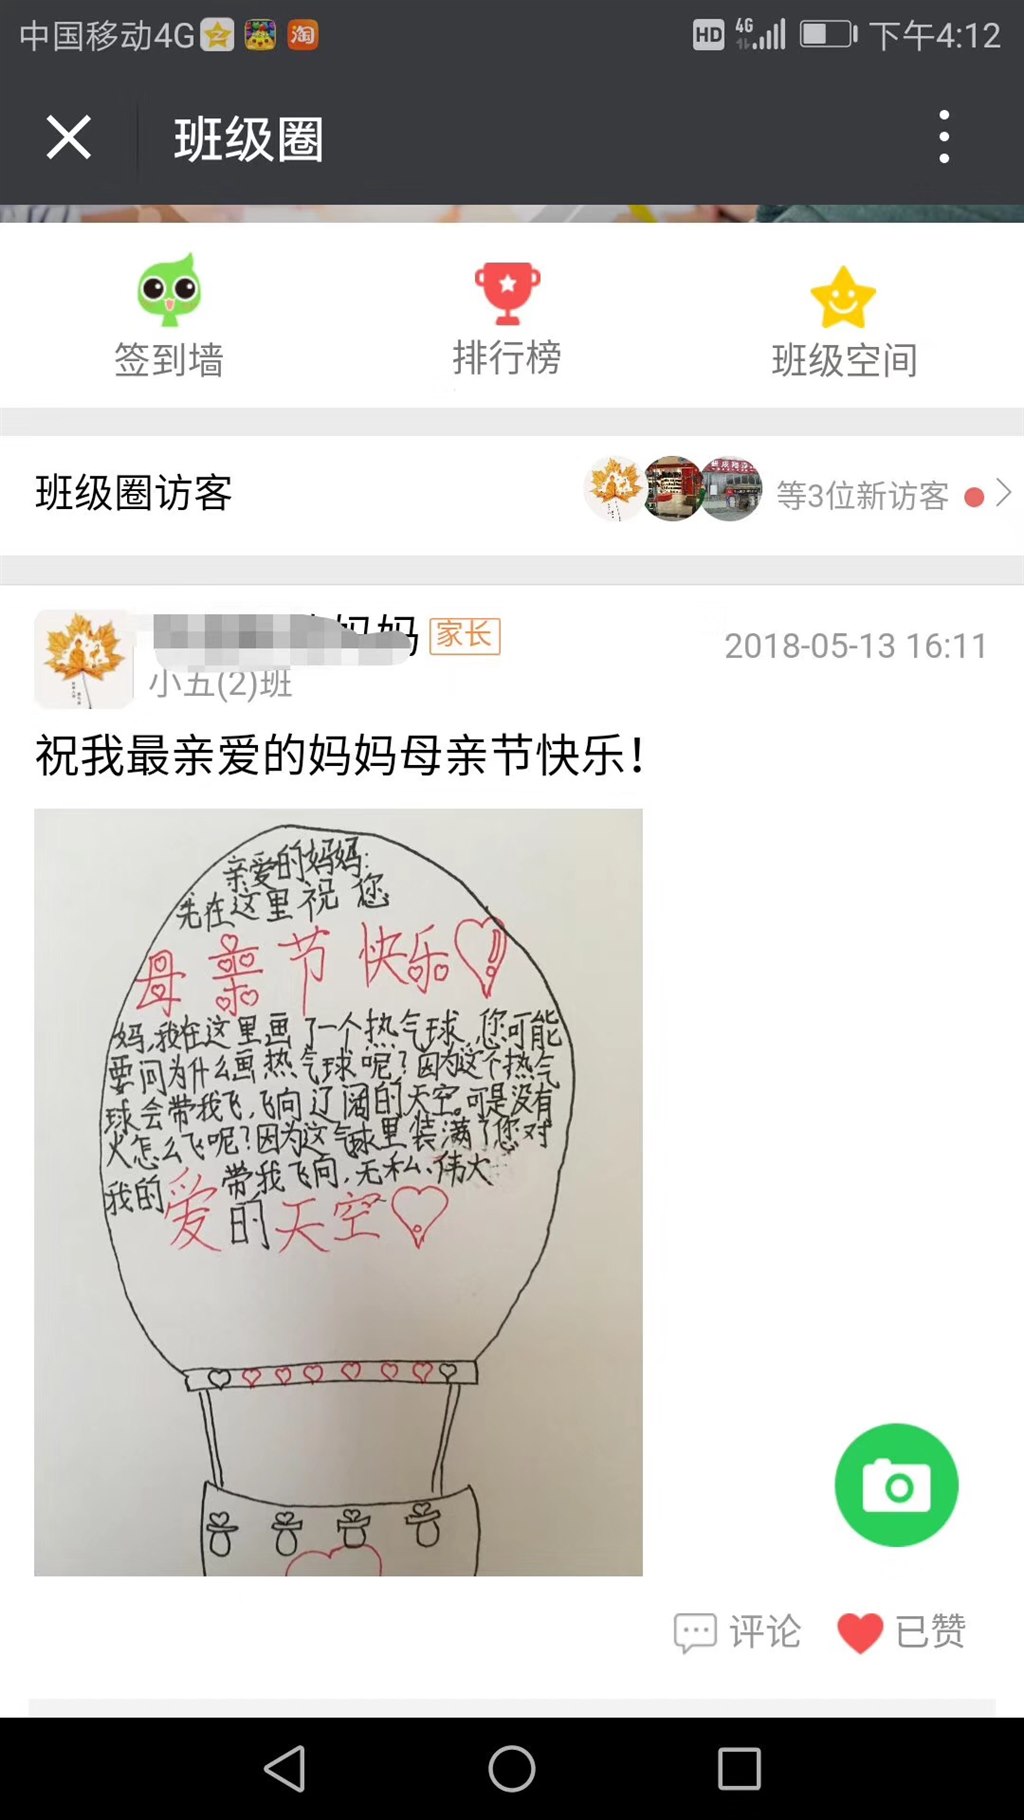 中国移动4G
淘
HD
4G
下午4:12
班级圈
签到墙
排行榜
班级空间
班级圈访客
等3位新访客
妈妈
家长
2018-05-13 16:11
小五(2)班
祝我最亲爱的妈妈母亲节快乐！
亲爱的妈妈:
先在这里祝 您
母亲节快乐
妈,我在这里画了一个热气球,您可能
要问为什么画热气球呢?因为这个热气
球会带我飞,飞向辽阔的天空。可是没有
火怎么飞呢?因为这气球里装满了您对
我的爱带我飞向,无私、伟大
的天空
评论
已赞